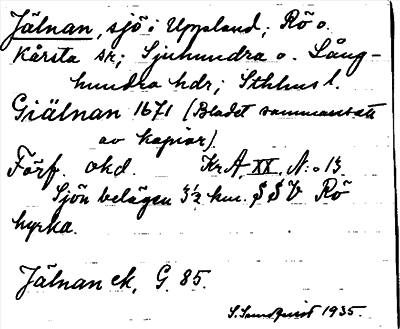 Jälnan, sjö i Uppland; Rö o.
Kårsta sk; Sjuhundra o. Lång-
hundra hdr; Sthlms l.
Giälnan 1671 (Bladet sammansatt
av kopior).
Förf. okd. Kr A, XX, N:o 13.
Sjön belägen 3½ km. SSV Rö
kyrka.
Jälnan ek, G. 85.
S. Sundquist 1935.